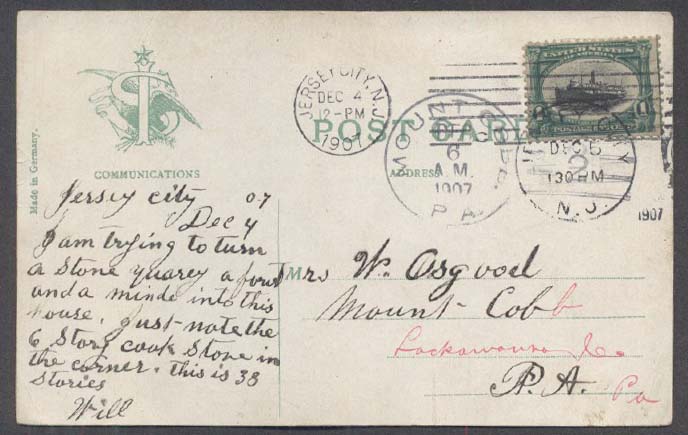 JERSEY CITY, N.J.
DEC 4
12-PM
1907
UNITED STATES
OF AMERICA
POST CARD
ADDRESS
MOUNT COBB.
DEC
6
A.M.
1907
PA
JERSEY CITY
DEC 5
2
130 AM
N.J.
1907
Made in Germany.
COMMUNICATIONS
Jersey city 07
Dec 4
I am trying to turn
a Stone quarey a fout
and a minde into this
house. Just note the
6 Story cook Stone in
the corner. this is 38
Stories
Will
Mrs W. Osgood
Mount Cobb
Lackawanna Co
P.A. Pa